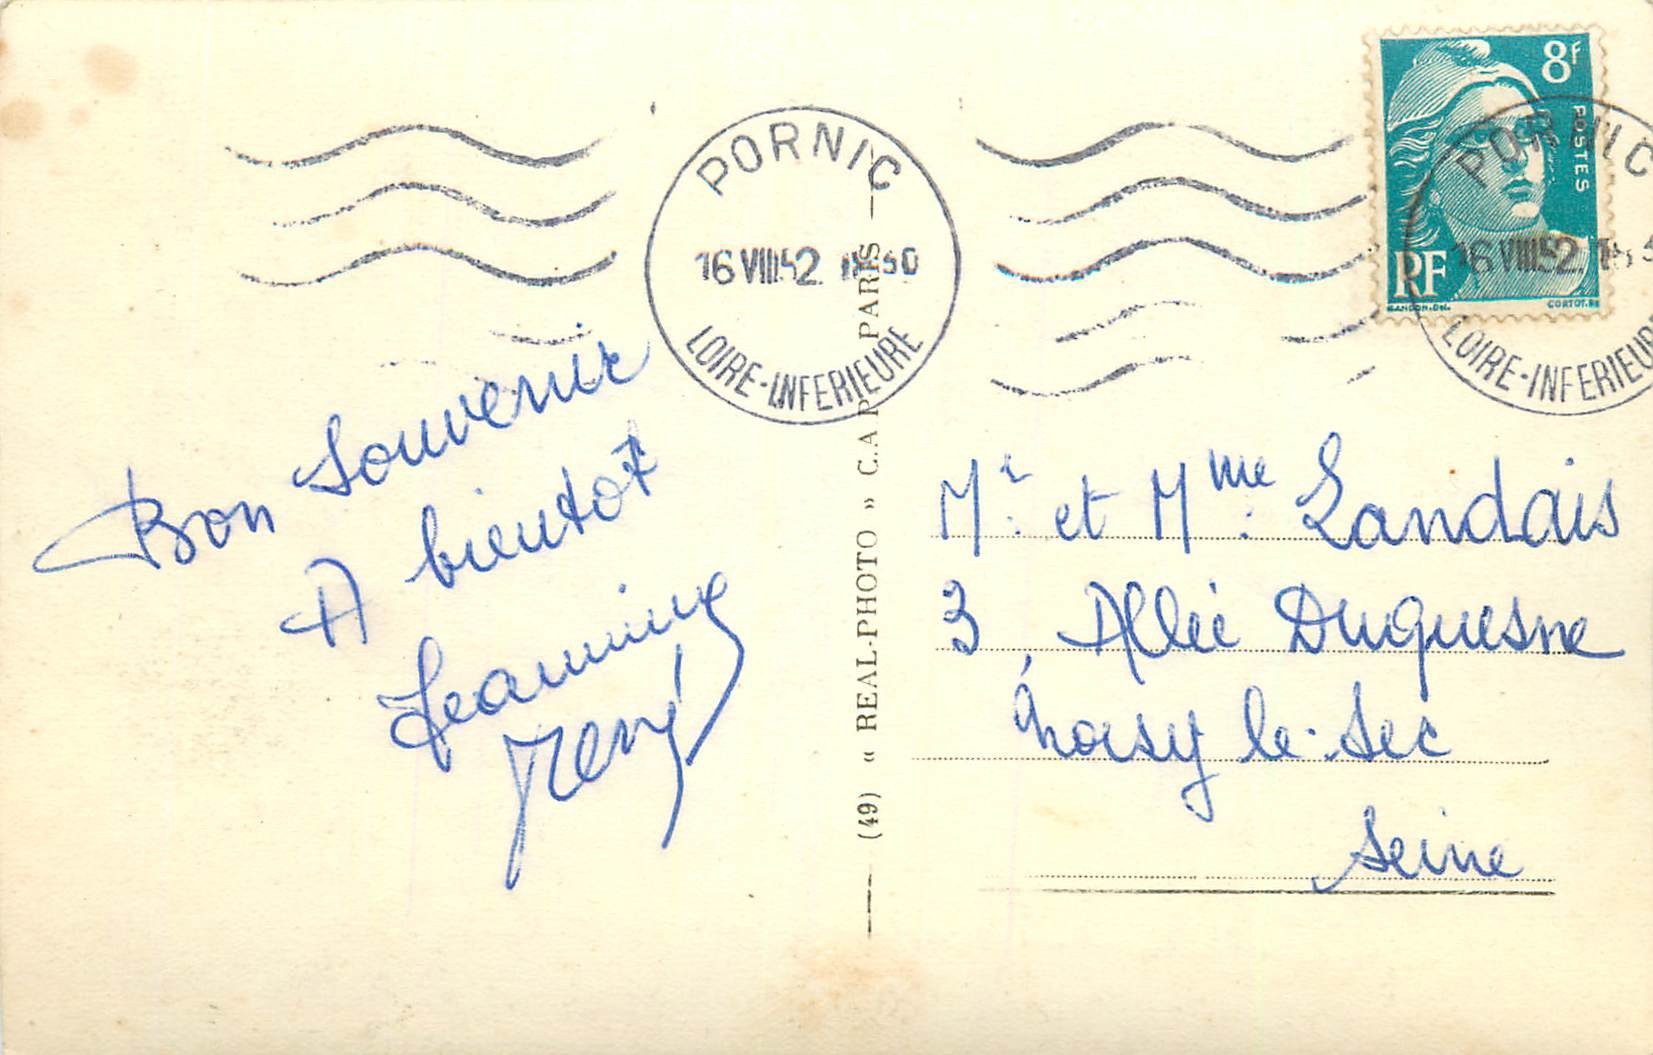 PORNIC
16 VIII 52
LOIRE-INFERIEURE
8F
POSTES
RF
GANDON.Del.
CORTOT.
PORNIC
16 VIII 52
LOIRE-INFERIEUR
Bon souvenir
A bientot
Jeannine
René
(49) « REAL-PHOTO » C.A.P. PARIS
Mr. et Mme. Landais
3, Allée Duquesne
Noisy le-Sec
Seine